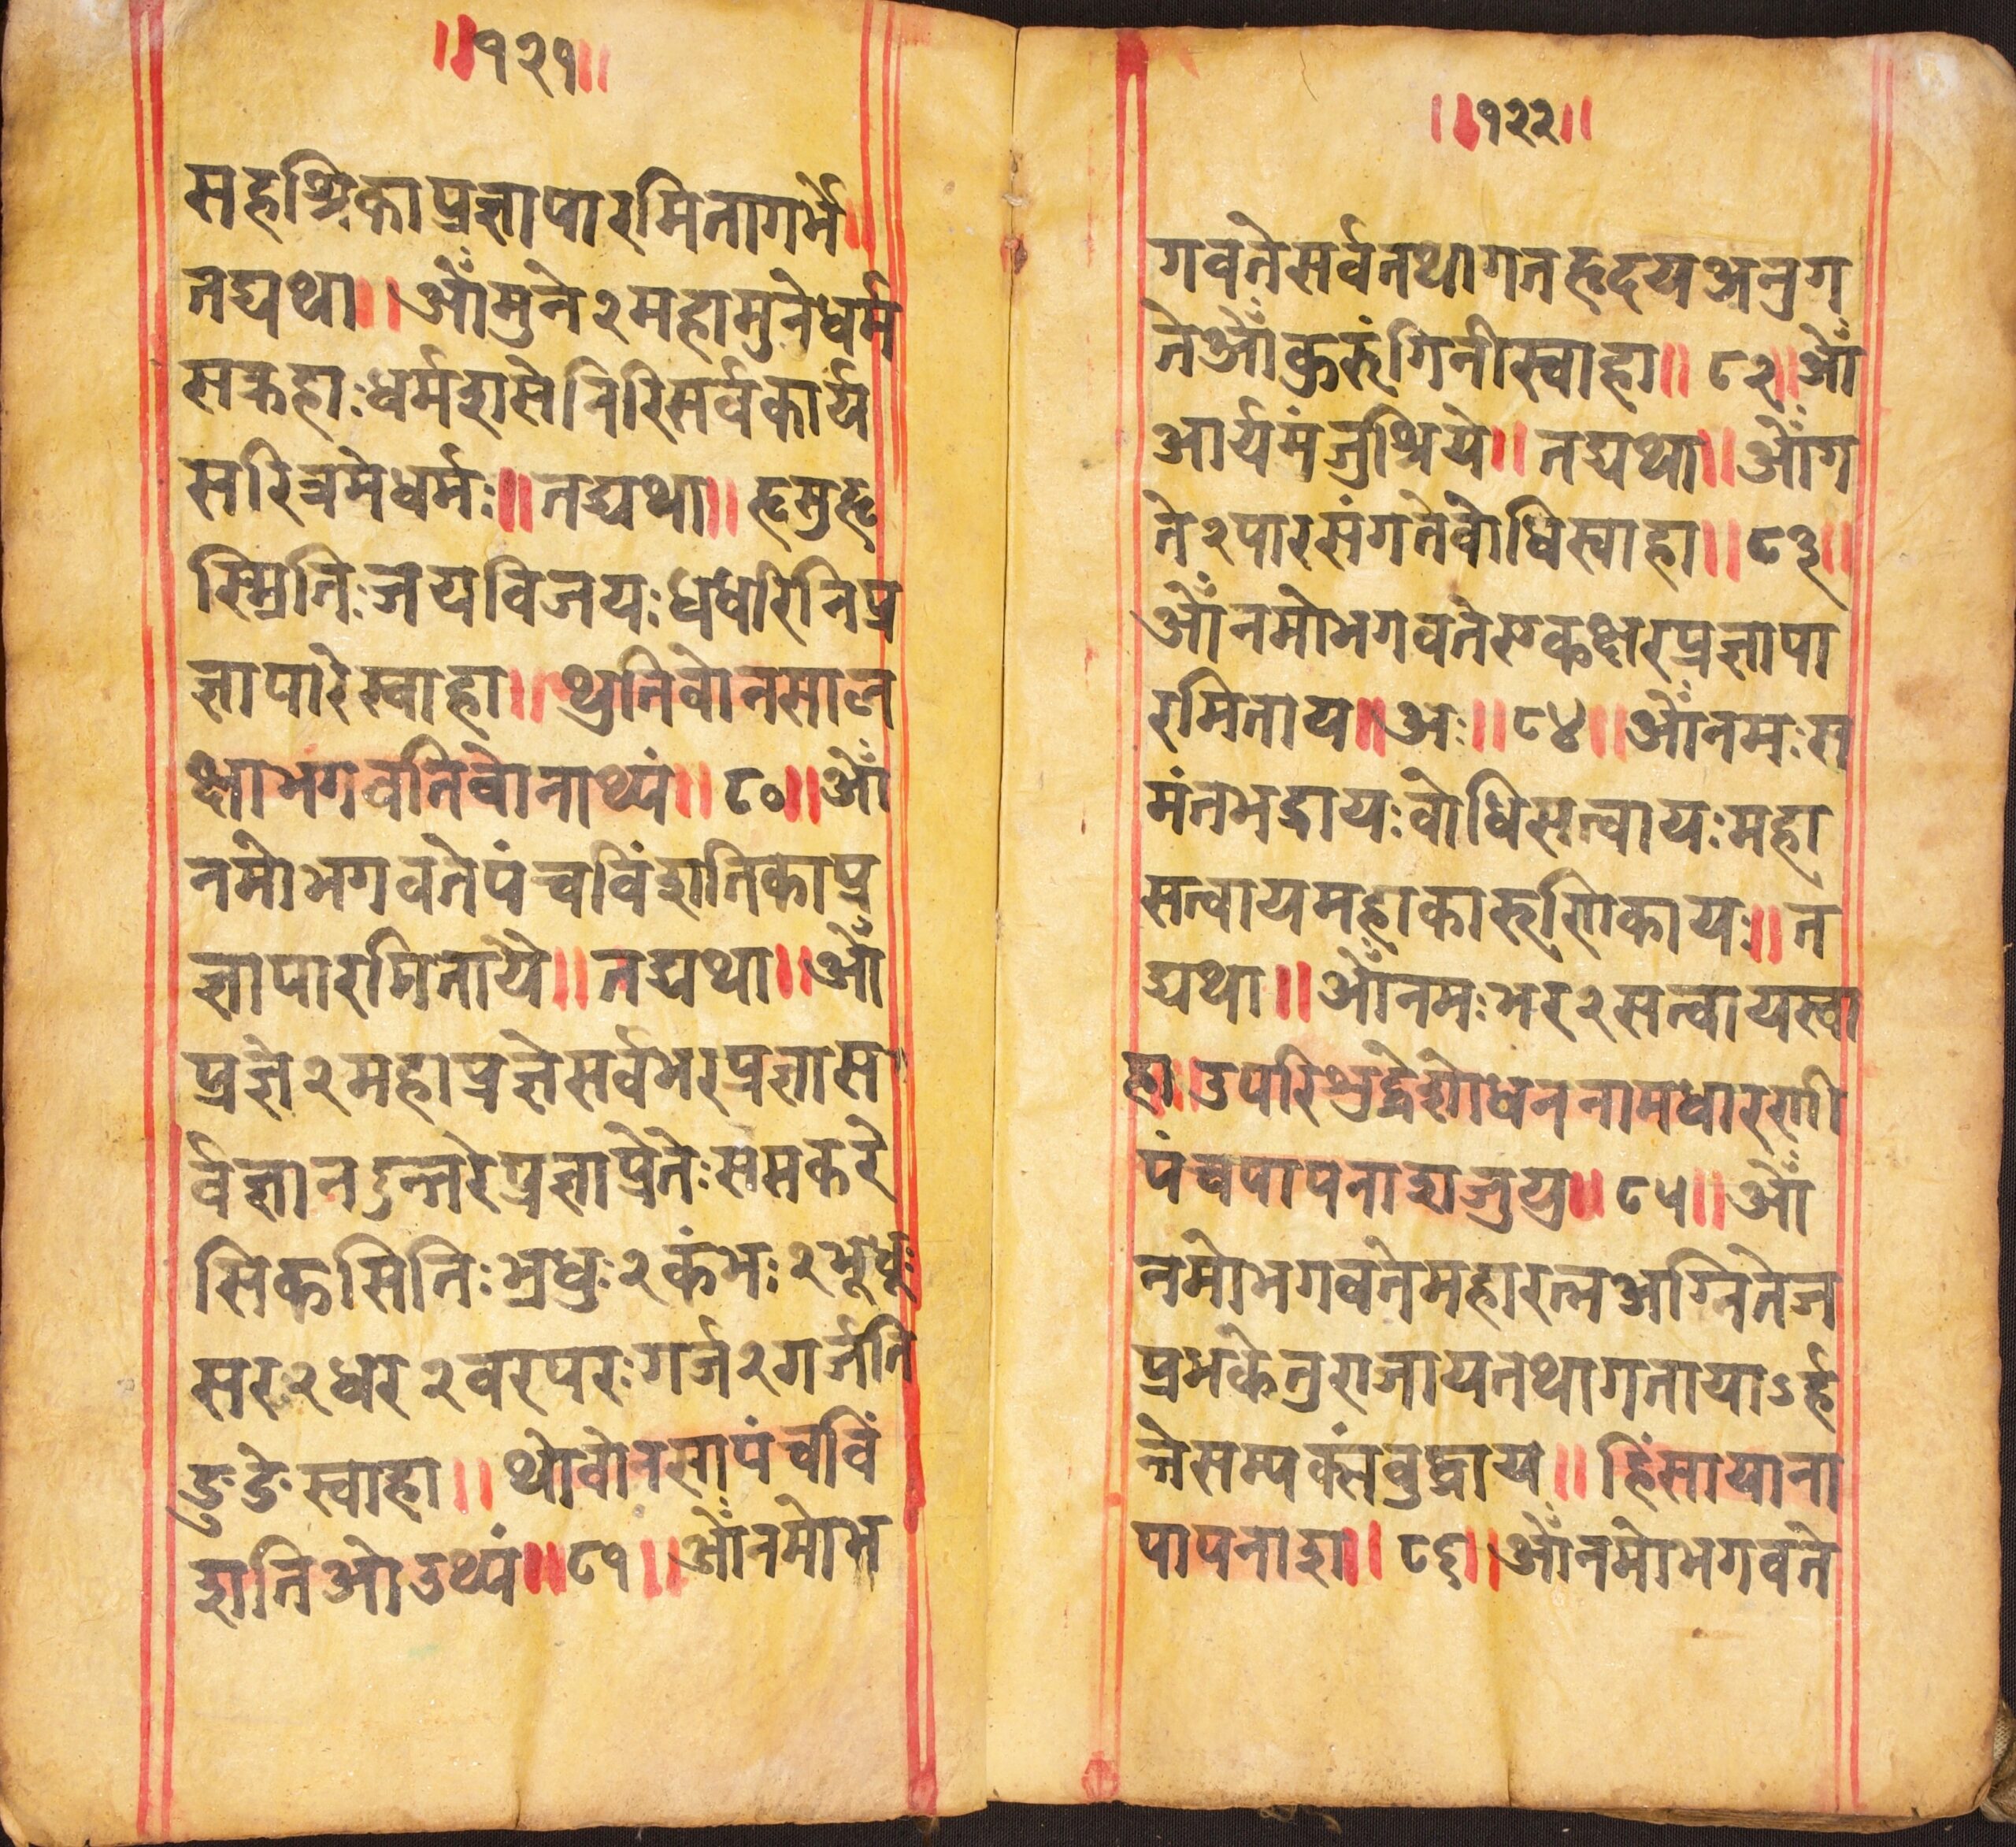 ॥१२१॥
सहश्रिकाप्रज्ञापारमितागर्भे॥
तद्यथा॥ओँमुने२महामुनेधर्म
सक्रहाःधर्मशसेविरिसर्वकार्य
सरित्रमेधर्मः॥तद्यथा॥हृमुहृ
स्म्रितिःजयविजयःधधारिनिप्र
ज्ञापारेस्वाहा॥थुतिवोनसाल
क्षाभगवतिवोनाथ्यं॥८०॥ओँ
नमोभगवतेपंचविंशतिकाप्र
ज्ञापारमितायै॥तद्यथा॥ओँ
प्रज्ञे२महाप्रज्ञेसर्वभरप्रज्ञास
र्वज्ञानउत्तरेप्रज्ञाप्रेतेःससकरे
सिकसितिःभ्रधुः२कंभः२भूधूः
सर२धर२वरपरःगर्ज२गर्जति
ङुङेस्वाहा॥थोवोनसापंचविं
शतिओउथ्यं॥८१॥ओँनमोभ
॥१२२॥
गवतेसर्वतथागतहृदयअनुग
तेओँकुरुंगिनीस्वाहा॥८२॥ओँ
आर्यमंजुश्रिये॥तद्यथा॥ओँग
ते२पारसंगतेवोधिस्वाहा॥८३॥
ओँनमोभगवतेएकक्षरप्रज्ञापा
रमिताय॥अः॥८४॥ओँनमःस
मंतभद्रायःवोधिसत्वायःमहा
सत्वायमहाकारुणिकायः॥त
द्यथा॥ओँनमःभर२सत्वायस्वा
हा॥उपरिशुद्धेशोधननामधारणी
पंचपापनाशजुयु॥८५॥ओँ
नमोभगवतेमहारत्नअग्नितेज
प्रभकेतुराजायतथागतायाऽर्ह
त्तेसम्यक्संवुद्धाय॥हिंसायाना
पापनाश॥८६॥ओँनमोभगवते